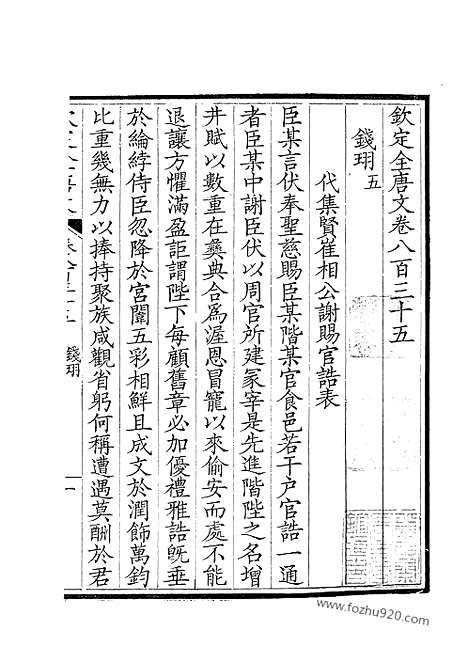 欽定全唐文卷八百三十五
錢珝五
代集賢崔相公謝賜官誥表
臣某言伏奉聖慈賜臣某階某官食邑若干戶官誥一通
者臣某中謝臣伏以周官所建冢宰是先進階陛之名增
井賦以數重在彝典合為渥恩冒寵以來偷安而處不能
退讓方懼滿盈詎謂陛下每顧舊章必加優禮雅誥既垂
於綸綍侍臣忽降於宮闈五彩相鮮且成文於潤飾萬鈞
比重幾無力以捧持聚族咸觀省躬何稱遭遇莫酬於君
錢珝
一
www.fozhu920.com